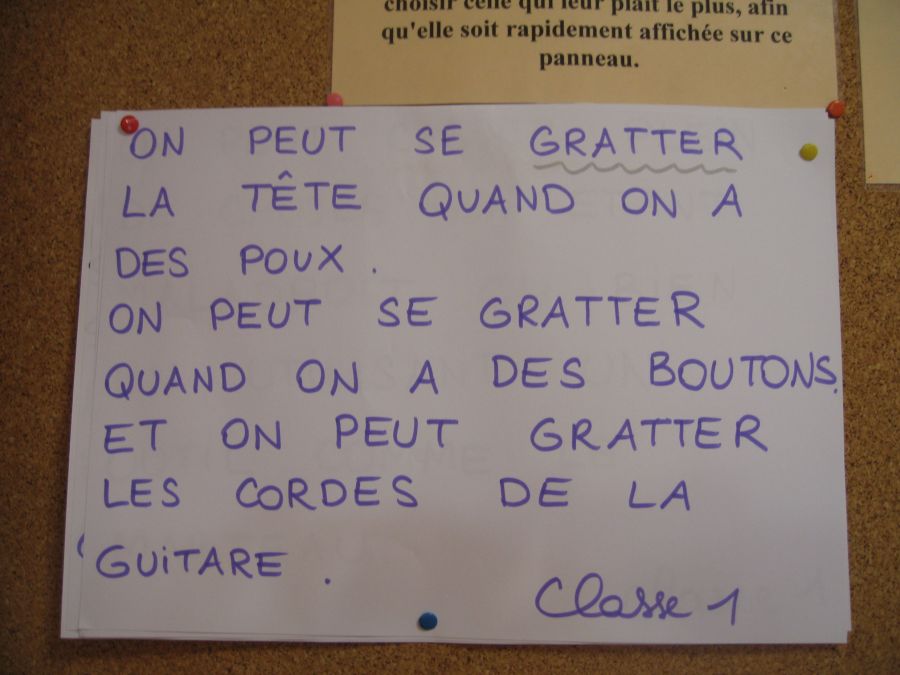 choisir celle qui leur plait le plus, afin
qu'elle soit rapidement affichée sur ce
panneau.
ON PEUT SE GRATTER
LA TÊTE QUAND ON A
DES POUX.
ON PEUT SE GRATTER
QUAND ON A DES BOUTONS.
ET ON PEUT GRATTER
LES CORDES DE LA
GUiTARE.
Classe 1